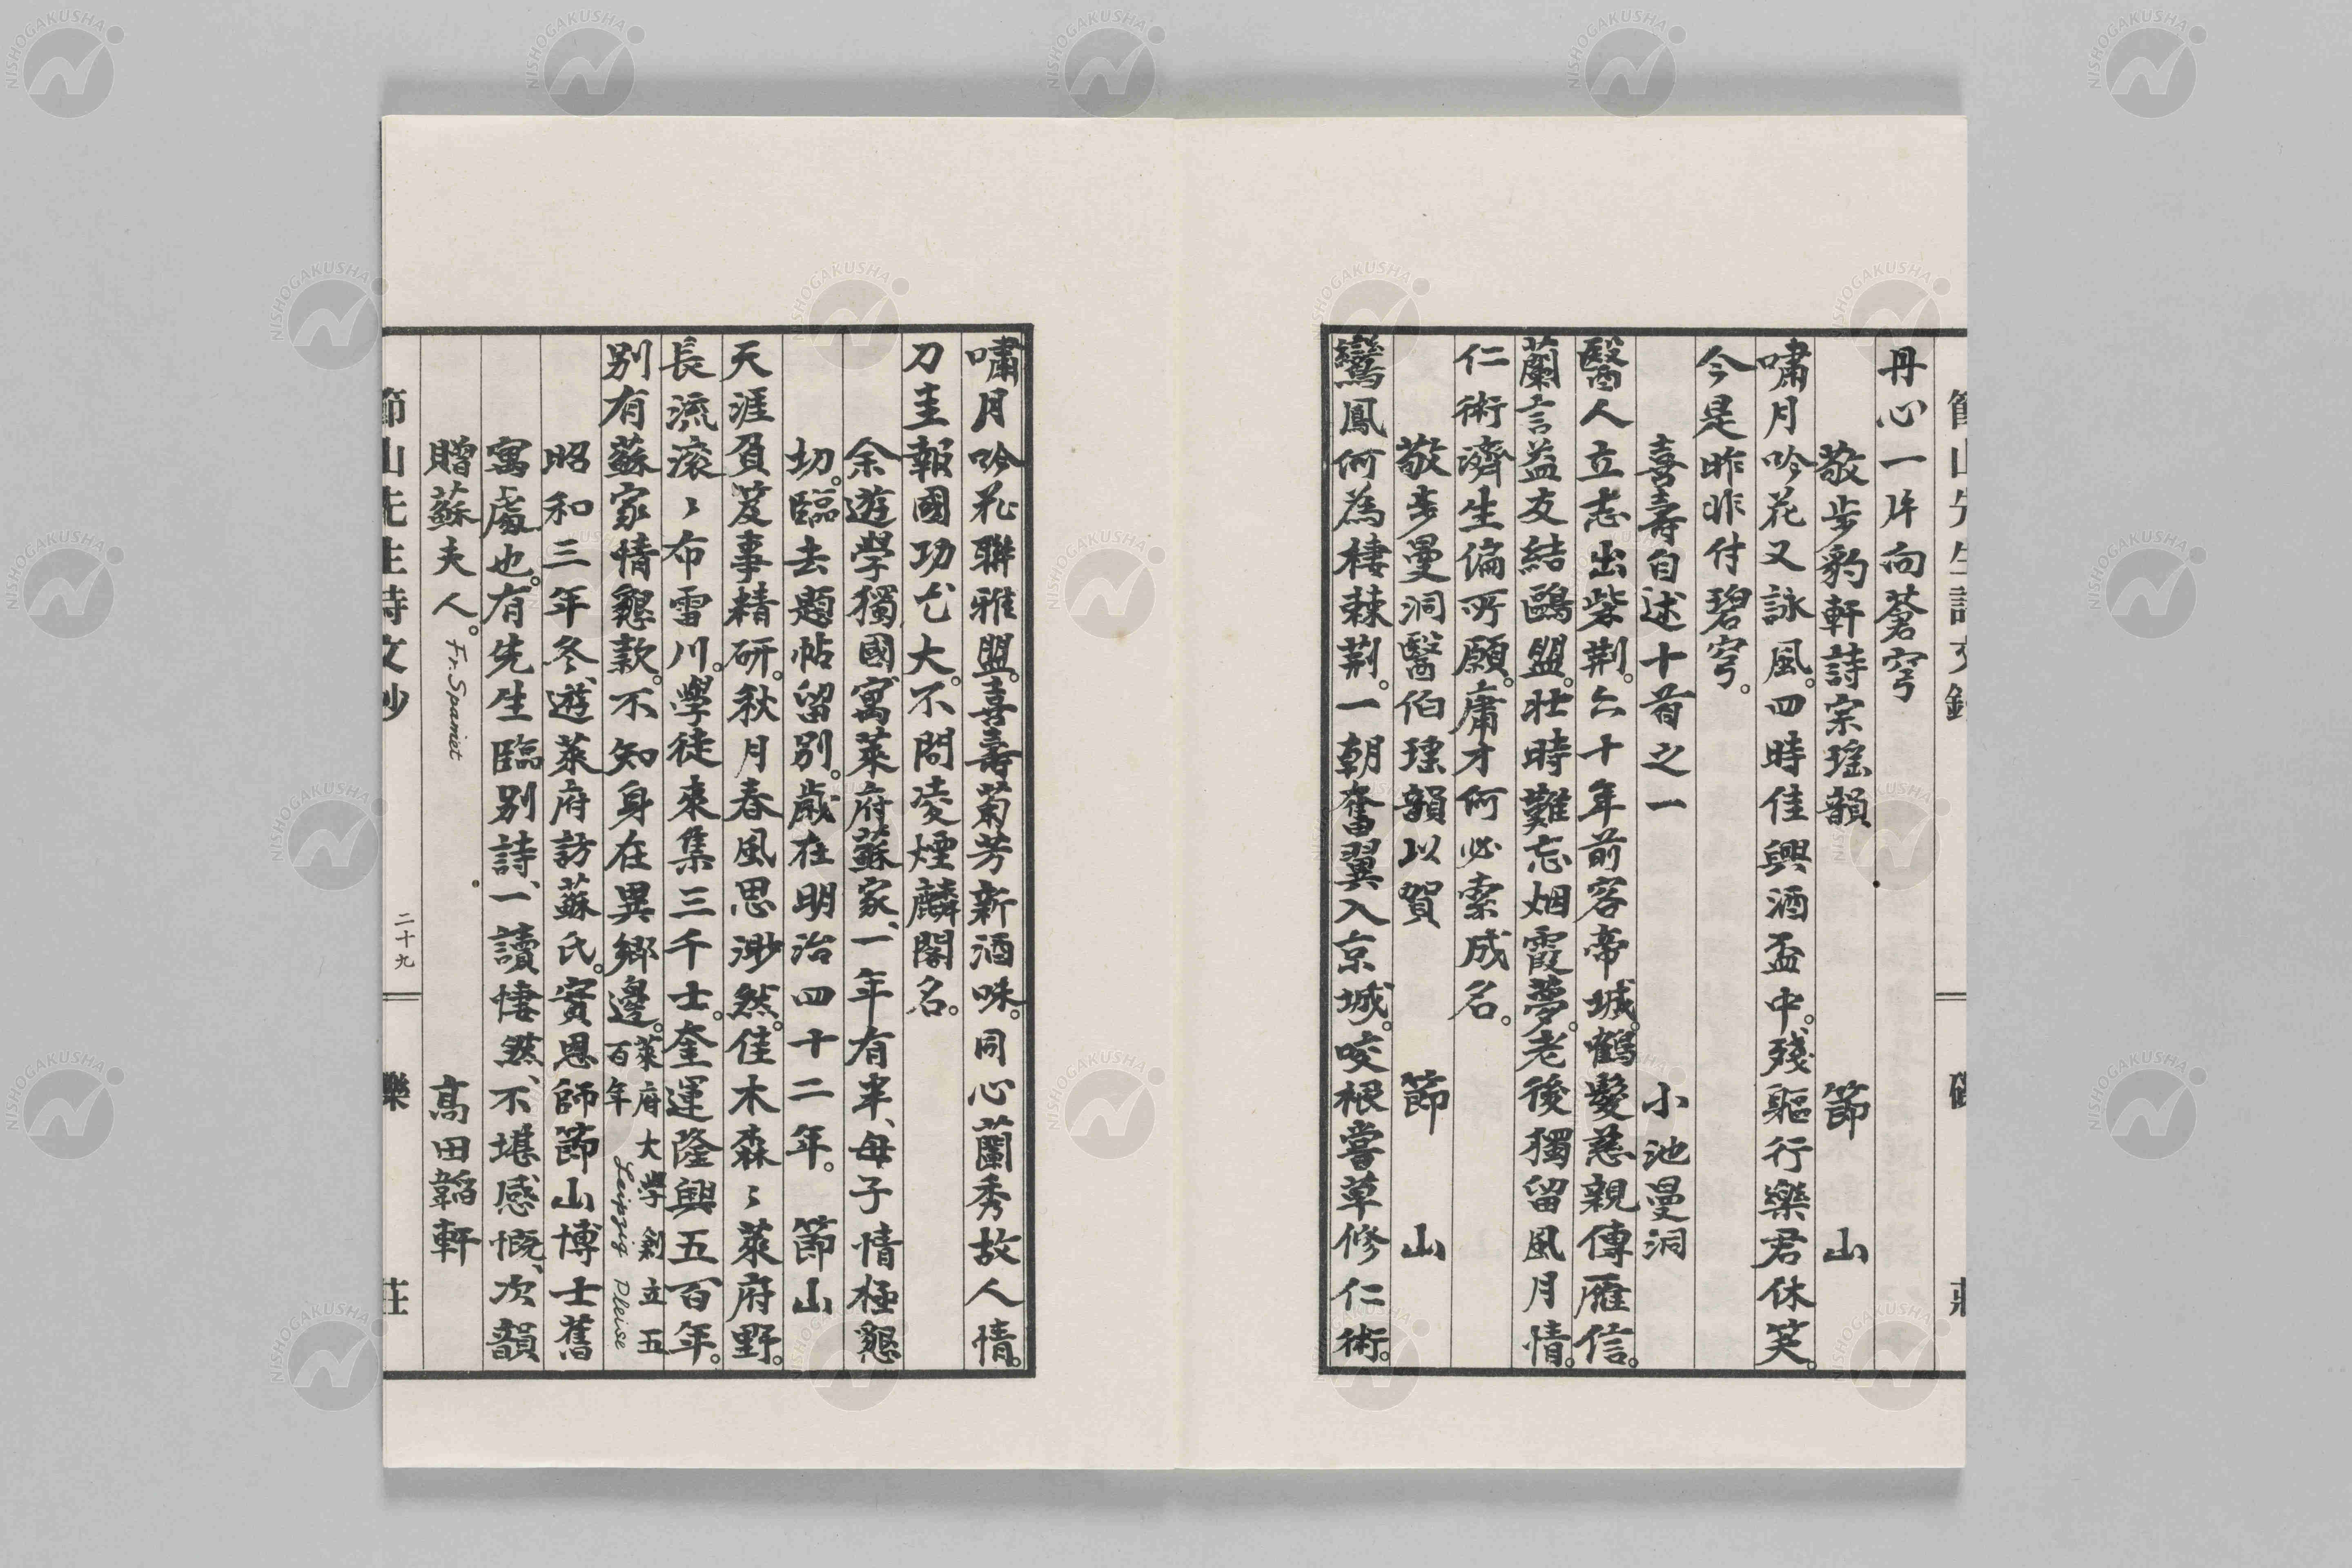 丹心一片向蒼穹
敬步豹軒詩宗瑶韻 節山
嘯月吟花又詠風。四時佳興酒盃中。殘軀行樂君休笑。
今是昨非付碧穹。
喜壽自述十首之一 小池曼洞
醫人立志出柴荆。六十年前客帝城。鶴髮慈親傳雁信。
蘭言益友結鷗盟。壯時難忘烟霞夢。老後獨留風月情。
仁術濟生偏所願。庸才何必索成名。
敬步曼洞醫伯瑶韻以賀 節山
鸞鳳何為棲棘荆。一朝奮翼入京城。咬根嘗草修仁術。
嘯月吟花聯雅盟。喜壽菊芳新酒味。同心蘭秀故人情。
刀圭報國功尤大。不問凌煙麟閣名。
余遊學獨國、寓萊府蘇家、一年有半、母子情極懇
切。臨去題帖留別。歳在明治四十二年。 節山
天涯負笈事精研。秋月春風思渺然。佳木森〻萊府野。
長流滾〻布雷川。學徒來集三千士。奎運隆興五百年。
別有蘇家情懇款。不知身在異鄉邊。萊府大學創立五百年 Leipzig Pleise
昭和三年冬、遊萊府訪蘇氏。實恩師節山博士舊
寓處也。有先生臨別詩、一讀悽然、不堪感慨、次韻
贈蘇夫人。Fr. Spaniet 髙田韜軒
節山先生詩文鈔 二十九 樂 莊